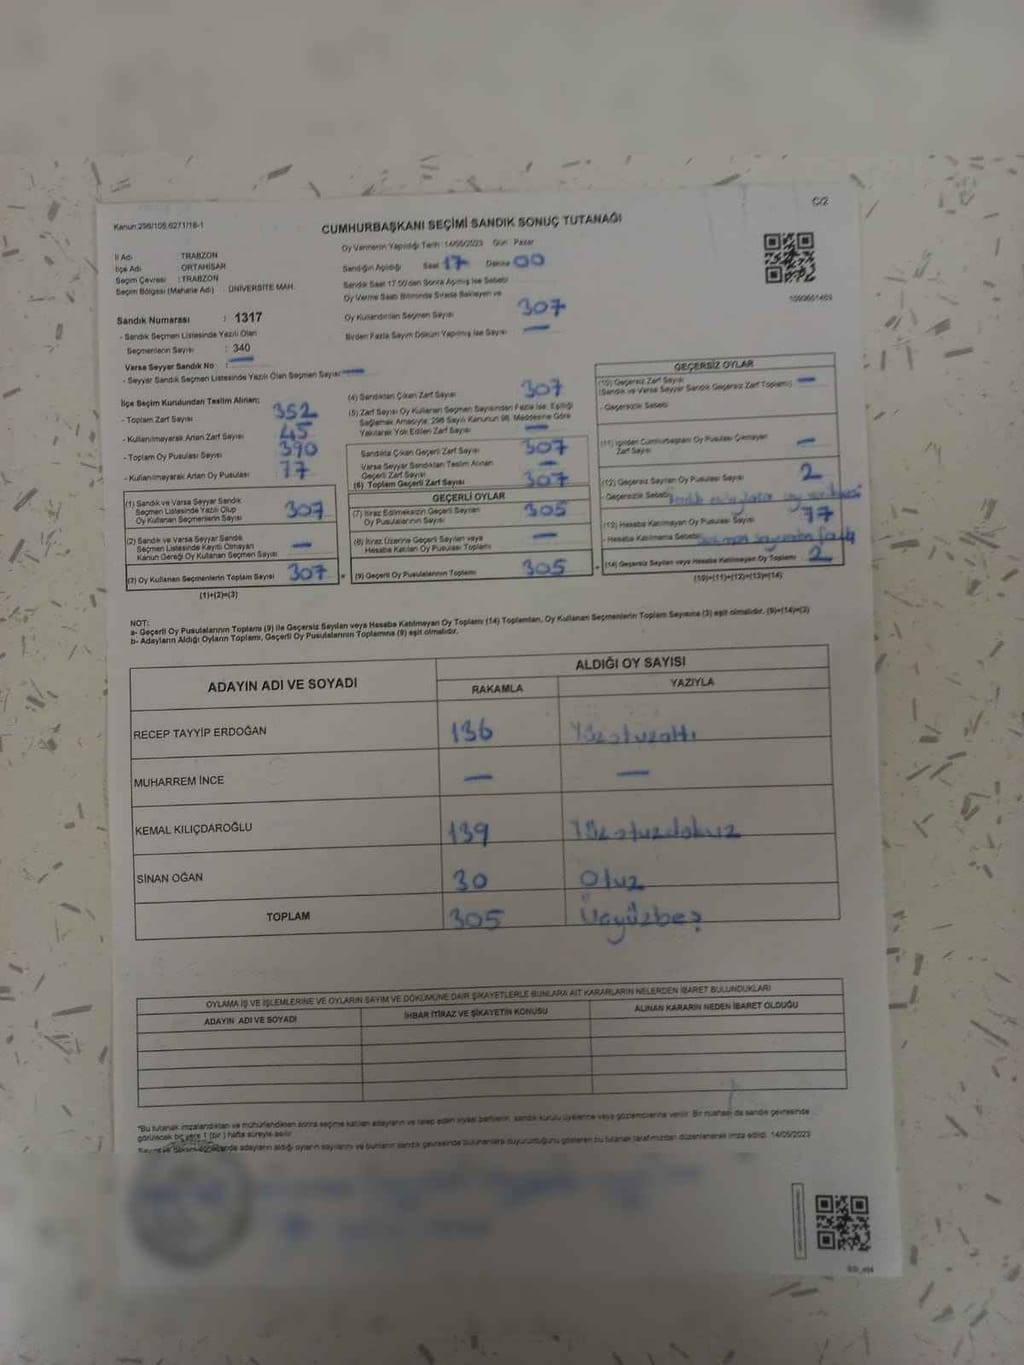 C/2
Kanun:298/105,6271/16-1
CUMHURBAŞKANI SEÇİMİ SANDIK SONUÇ TUTANAĞI
Oy Vermenin Yapıldığı Tarih :14/05/2023 Gün : Pazar
İl Adı : TRABZON
İlçe Adı : ORTAHİSAR
Seçim Çevresi : TRABZON
Seçim Bölgesi (Mahalle Adı) : ÜNİVERSİTE MAH.
Sandığın Açıldığı Saat 17 Dakika 00
Sandık Saat 17.00'den Sonra Açılmış İse Sebebi
Oy Verme Saati Bitiminde Sırada Bekleyen ve
Oy Kullandırılan Seçmen Sayısı 307
Birden Fazla Sayım Döküm Yapılmış İse Sayısı —
Sandık Numarası : 1317
- Sandık Seçmen Listesinde Yazılı Olan
Seçmenlerin Sayısı : 340
Varsa Seyyar Sandık No : —
- Seyyar Sandık Seçmen Listesinde Yazılı Olan Seçmen Sayısı —
İlçe Seçim Kurulundan Teslim Alınan;
- Toplam Zarf Sayısı 352
- Kullanılmayarak Artan Zarf Sayısı 45
- Toplam Oy Pusulası Sayısı 390
- Kullanılmayarak Artan Oy Pusulası 77
(1) Sandık ve Varsa Seyyar Sandık
Seçmen Listesinde Yazılı Olup
Oy Kullanan Seçmenlerin Sayısı 307
(2) Sandık ve Varsa Seyyar Sandık
Seçmen Listesinde Kayıtlı Olmayan
Kanun Gereği Oy Kullanan Seçmen Sayısı —
(3) Oy Kullanan Seçmenlerin Toplam Sayısı 307
(1)+(2)=(3)
(4) Sandıktan Çıkan Zarf Sayısı 307
(5) Zarf Sayısı Oy Kullanan Seçmen Sayısından Fazla İse; Eşitliği
Sağlamak Amacıyla; 298 Sayılı Kanunun 98. Maddesine Göre
Yakılarak Yok Edilen Zarf Sayısı —
Sandıkta Çıkan Geçerli Zarf Sayısı 307
Varsa Seyyar Sandıktan Teslim Alınan
Geçerli Zarf Sayısı —
(6) Toplam Geçerli Zarf Sayısı 307
GEÇERLİ OYLAR
(7) İtiraz Edilmeksizin Geçerli Sayılan
Oy Pusulalarının Sayısı 305
(8) İtiraz Üzerine Geçerli Sayılan veya
Hesaba Katılan Oy Pusulası Toplamı —
= (9) Geçerli Oy Pusulalarının Toplamı 305
GEÇERSİZ OYLAR
(10) Geçersiz Zarf Sayısı —
(Sandık ve Varsa Seyyar Sandık Geçersiz Zarf Toplamı)
- Geçersizlik Sebebi
(11) İçinden Cumhurbaşkanı Oy Pusulası Çıkmayan
Zarf Sayısı —
(12) Geçersiz Sayılan Oy Pusulası Sayısı 2
- Geçersizlik Sebebi
(13) Hesaba Katılmayan Oy Pusulası Sayısı 77
- Hesaba Katılmama Sebebi
+ (14) Geçersiz Sayılan veya Hesaba Katılmayan Oy Toplamı 2
(10)+(11)+(12)+(13)=(14)
NOT:
a- Geçerli Oy Pusulalarının Toplamı (9) ile Geçersiz Sayılan veya Hesaba Katılmayan Oy Toplamı (14) Toplamları, Oy Kullanan Seçmenlerin Toplam Sayısına (3) eşit olmalıdır. (9)+(14)=(3)
b- Adayların Aldığı Oyların Toplamı, Geçerli Oy Pusulalarının Toplamına (9) eşit olmalıdır.
ADAYIN ADI VE SOYADI ALDIĞI OY SAYISI
RAKAMLA YAZIYLA
RECEP TAYYİP ERDOĞAN 136 Yüzotuzaltı
MUHARREM İNCE — —
KEMAL KILIÇDAROĞLU 139 Yüzotuzdokuz
SİNAN OĞAN 30 Otuz
TOPLAM 305 Üçyüzbeş
OYLAMA İŞ VE İŞLEMLERİNE VE OYLARIN SAYIM VE DÖKÜMÜNE DAİR ŞİKAYETLERLE BUNLARA AİT KARARLARIN NELERDEN İBARET BULUNDUKLARI
ADAYIN ADI VE SOYADI İHBAR İTİRAZ VE ŞİKAYETİN KONUSU ALINAN KARARIN NEDEN İBARET OLDUĞU
*Bu tutanak imzalandıktan ve mühürlendikten sonra seçime katılan adayların ve talep eden siyasi partilerin, sandık kurulu üyelerine veya gözlemcilerine verilir. Bir nüshası da sandık çevresinde
görülecek bir yere 1 (bir) hafta süreyle asılır.
adayların aldığı oyların sayılarını ve bunların sandık çevresinde bulunanlara duyurulduğunu gösteren bu tutanak tarafımızdan düzenlenerek imza edildi. 14/05/2023